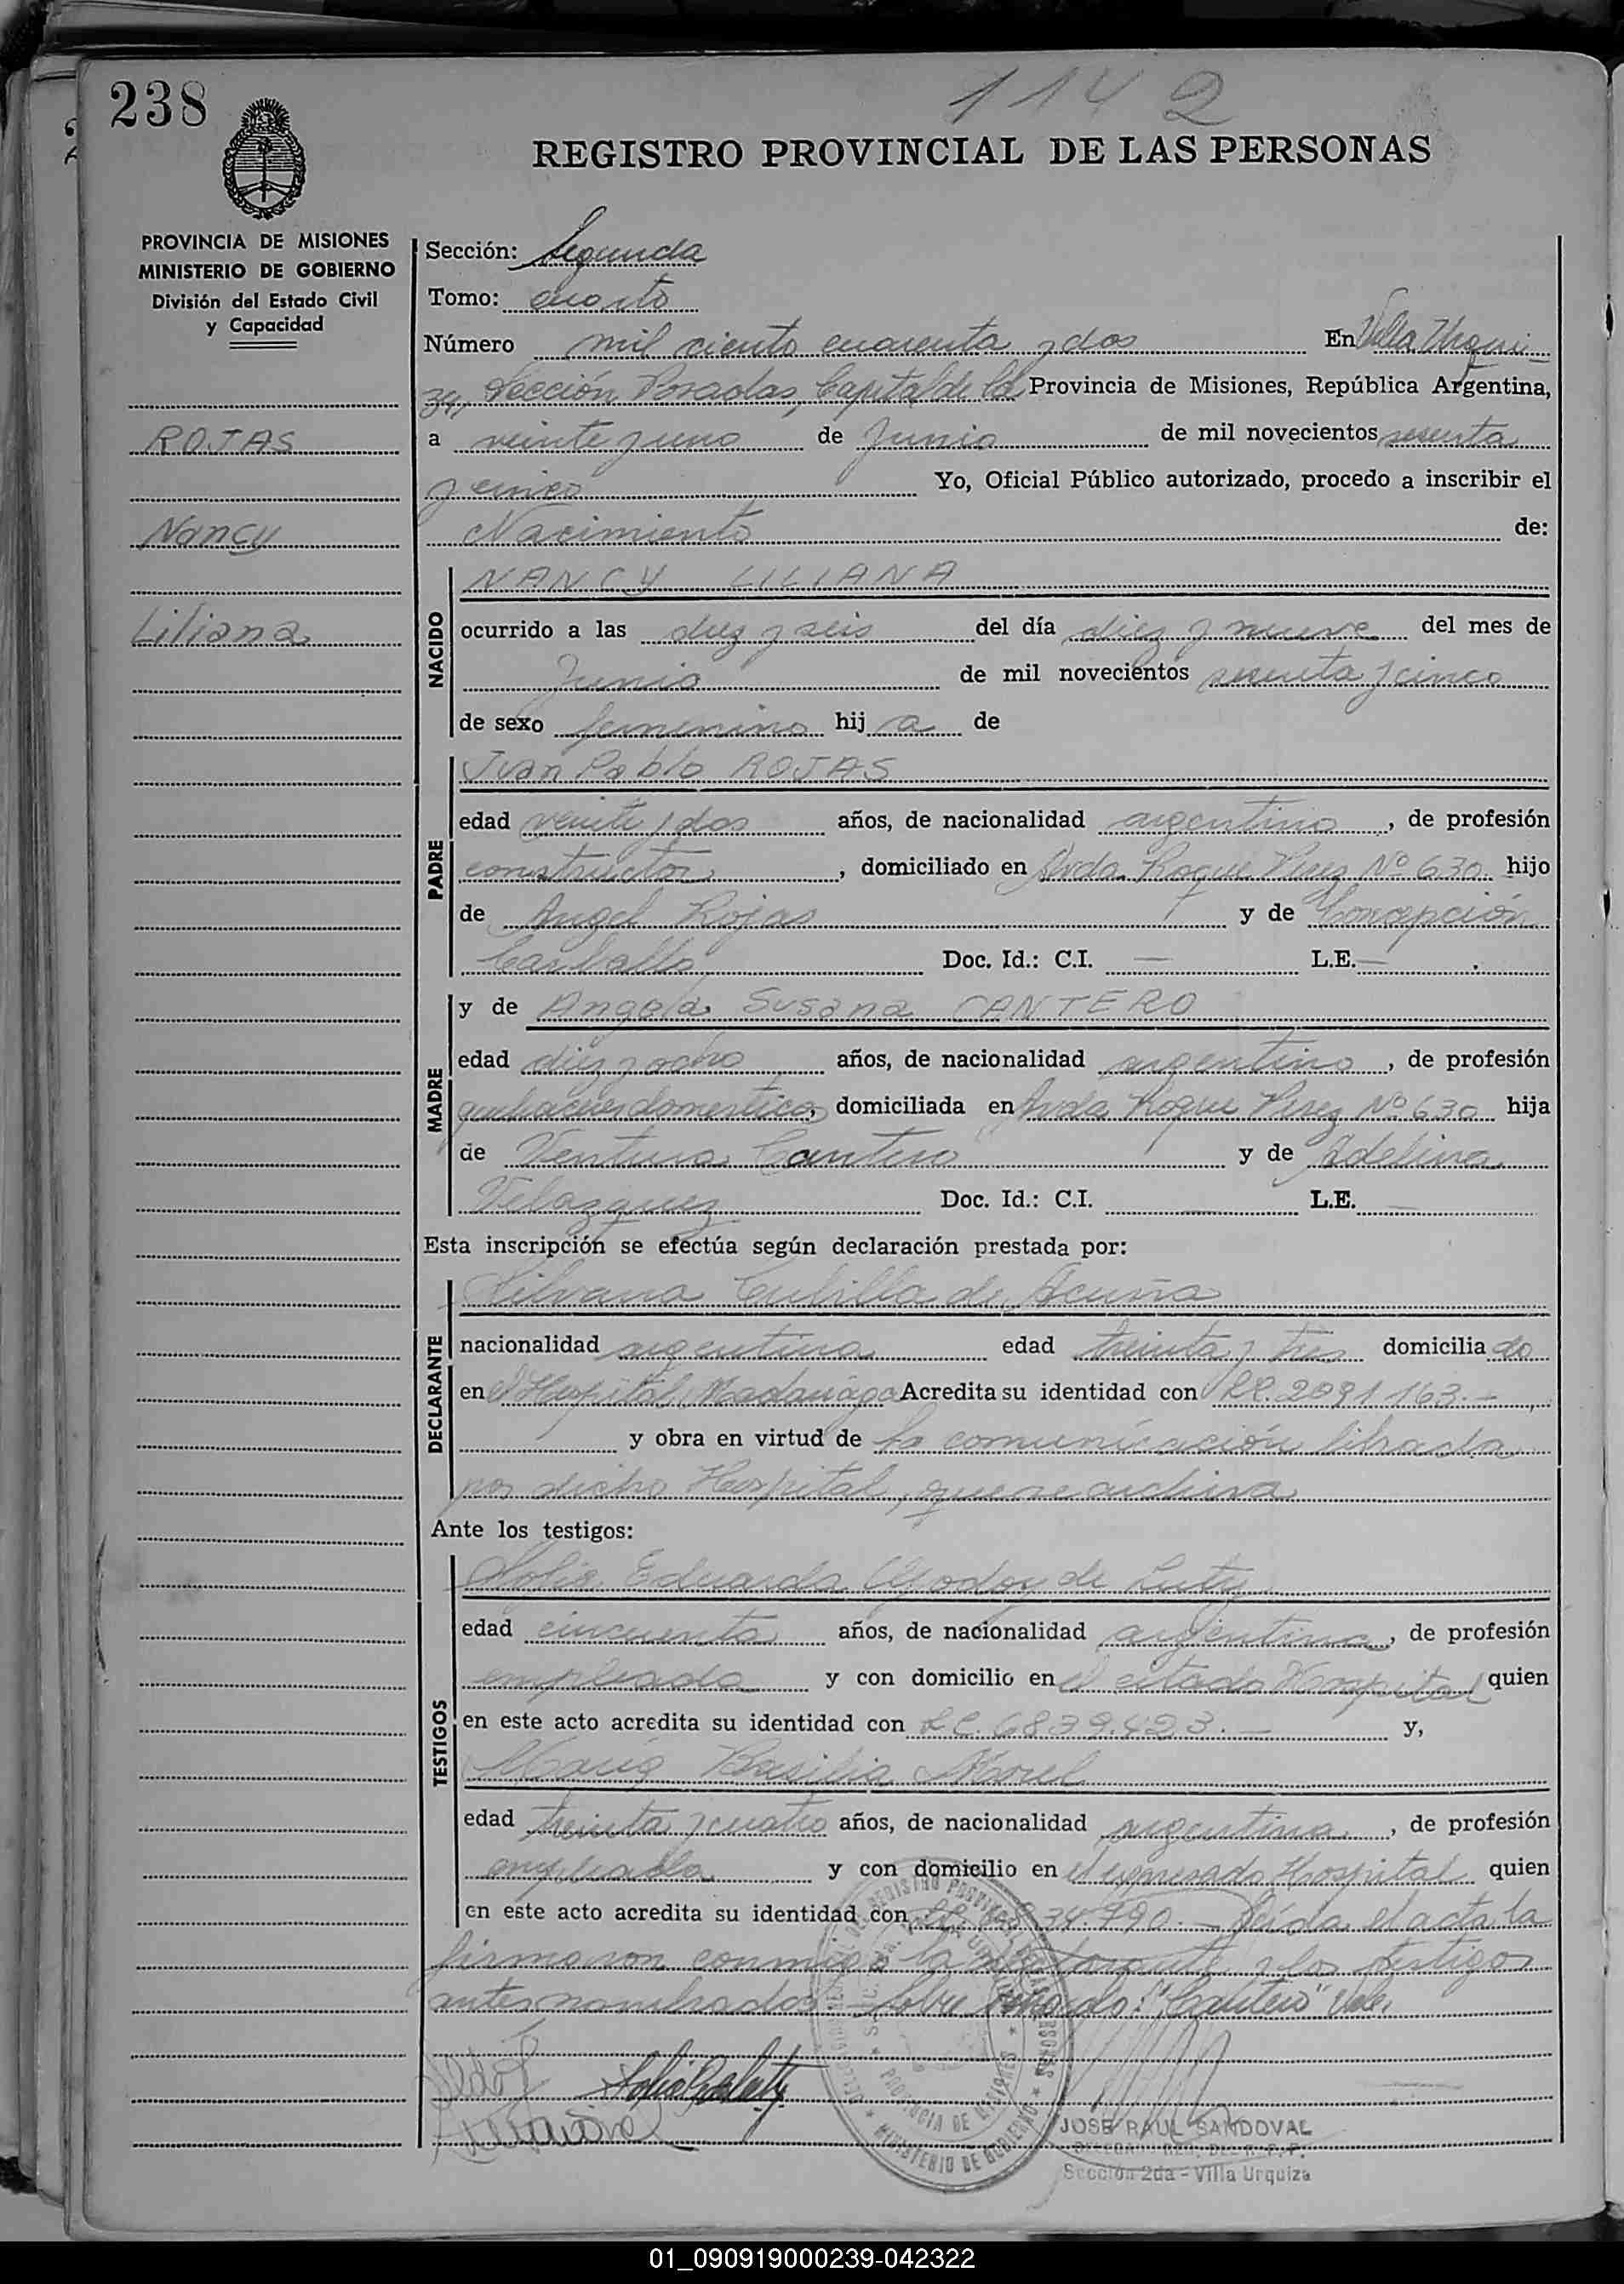 238
1142
REGISTRO PROVINCIAL DE LAS PERSONAS
PROVINCIA DE MISIONES
MINISTERIO DE GOBIERNO
División del Estado Civil
y Capacidad
ROJAS
Nancy
Liliana
Sección: Segunda
Tomo: cuarto
Número mil ciento cuarenta y dos En Villa Urqui-
za, Sección Posadas, Capital de la Provincia de Misiones, República Argentina,
a veinte y uno de Junio de mil novecientos sesenta
y cinco Yo, Oficial Público autorizado, procedo a inscribir el
Nacimiento de:
NACIDO
NANCY LILIANA
ocurrido a las diez y seis del día diez y nueve del mes de
Junio de mil novecientos sesenta y cinco
de sexo femenino hij a de
PADRE
Juan Pablo ROJAS
edad veinte y dos años, de nacionalidad argentino, de profesión
constructor, domiciliado en Avda. Roque Perez Nº 630 hijo
de Angel Rojas y de Concepción
Carballo Doc. Id.: C.I. — L.E. —
MADRE
y de Angela Susana CANTERO
edad diez y ocho años, de nacionalidad argentina, de profesión
quehaceres domesticos, domiciliada en Avda Roque Perez Nº 630 hija
de Ventura Cantero y de Adelina
Velazquez Doc. Id.: C.I. — L.E. —
Esta inscripción se efectúa según declaración prestada por:
DECLARANTE
Silvana Cubilla de Acuña
nacionalidad argentina edad treinta y tres domicilia do
en el Hospital Madariaga Acredita su identidad con LC. 2091163.-
y obra en virtud de la comunicación librada
por dicho Hospital, que se archiva
Ante los testigos:
TESTIGOS
Eduarda Godoy de Luty
edad cincuenta años, de nacionalidad argentina, de profesión
empleada y con domicilio en el citado Hospital quien
en este acto acredita su identidad con LC. 6839.423.— y,
María Basilia Morel
edad treinta y cuatro años, de nacionalidad argentina, de profesión
empleada y con domicilio en el expresado Hospital quien
en este acto acredita su identidad con 34.790.— Leída el acta la
firmaron conmigo la y los testigos
antes nombrados. Sobre "Cantero" Vale.
MINISTERIO DE GOBIERNO
PROVINCIA DE MISIONES
JOSE RAUL SANDOVAL
Sección 2da - Villa Urquiza
01_090919000239-042322